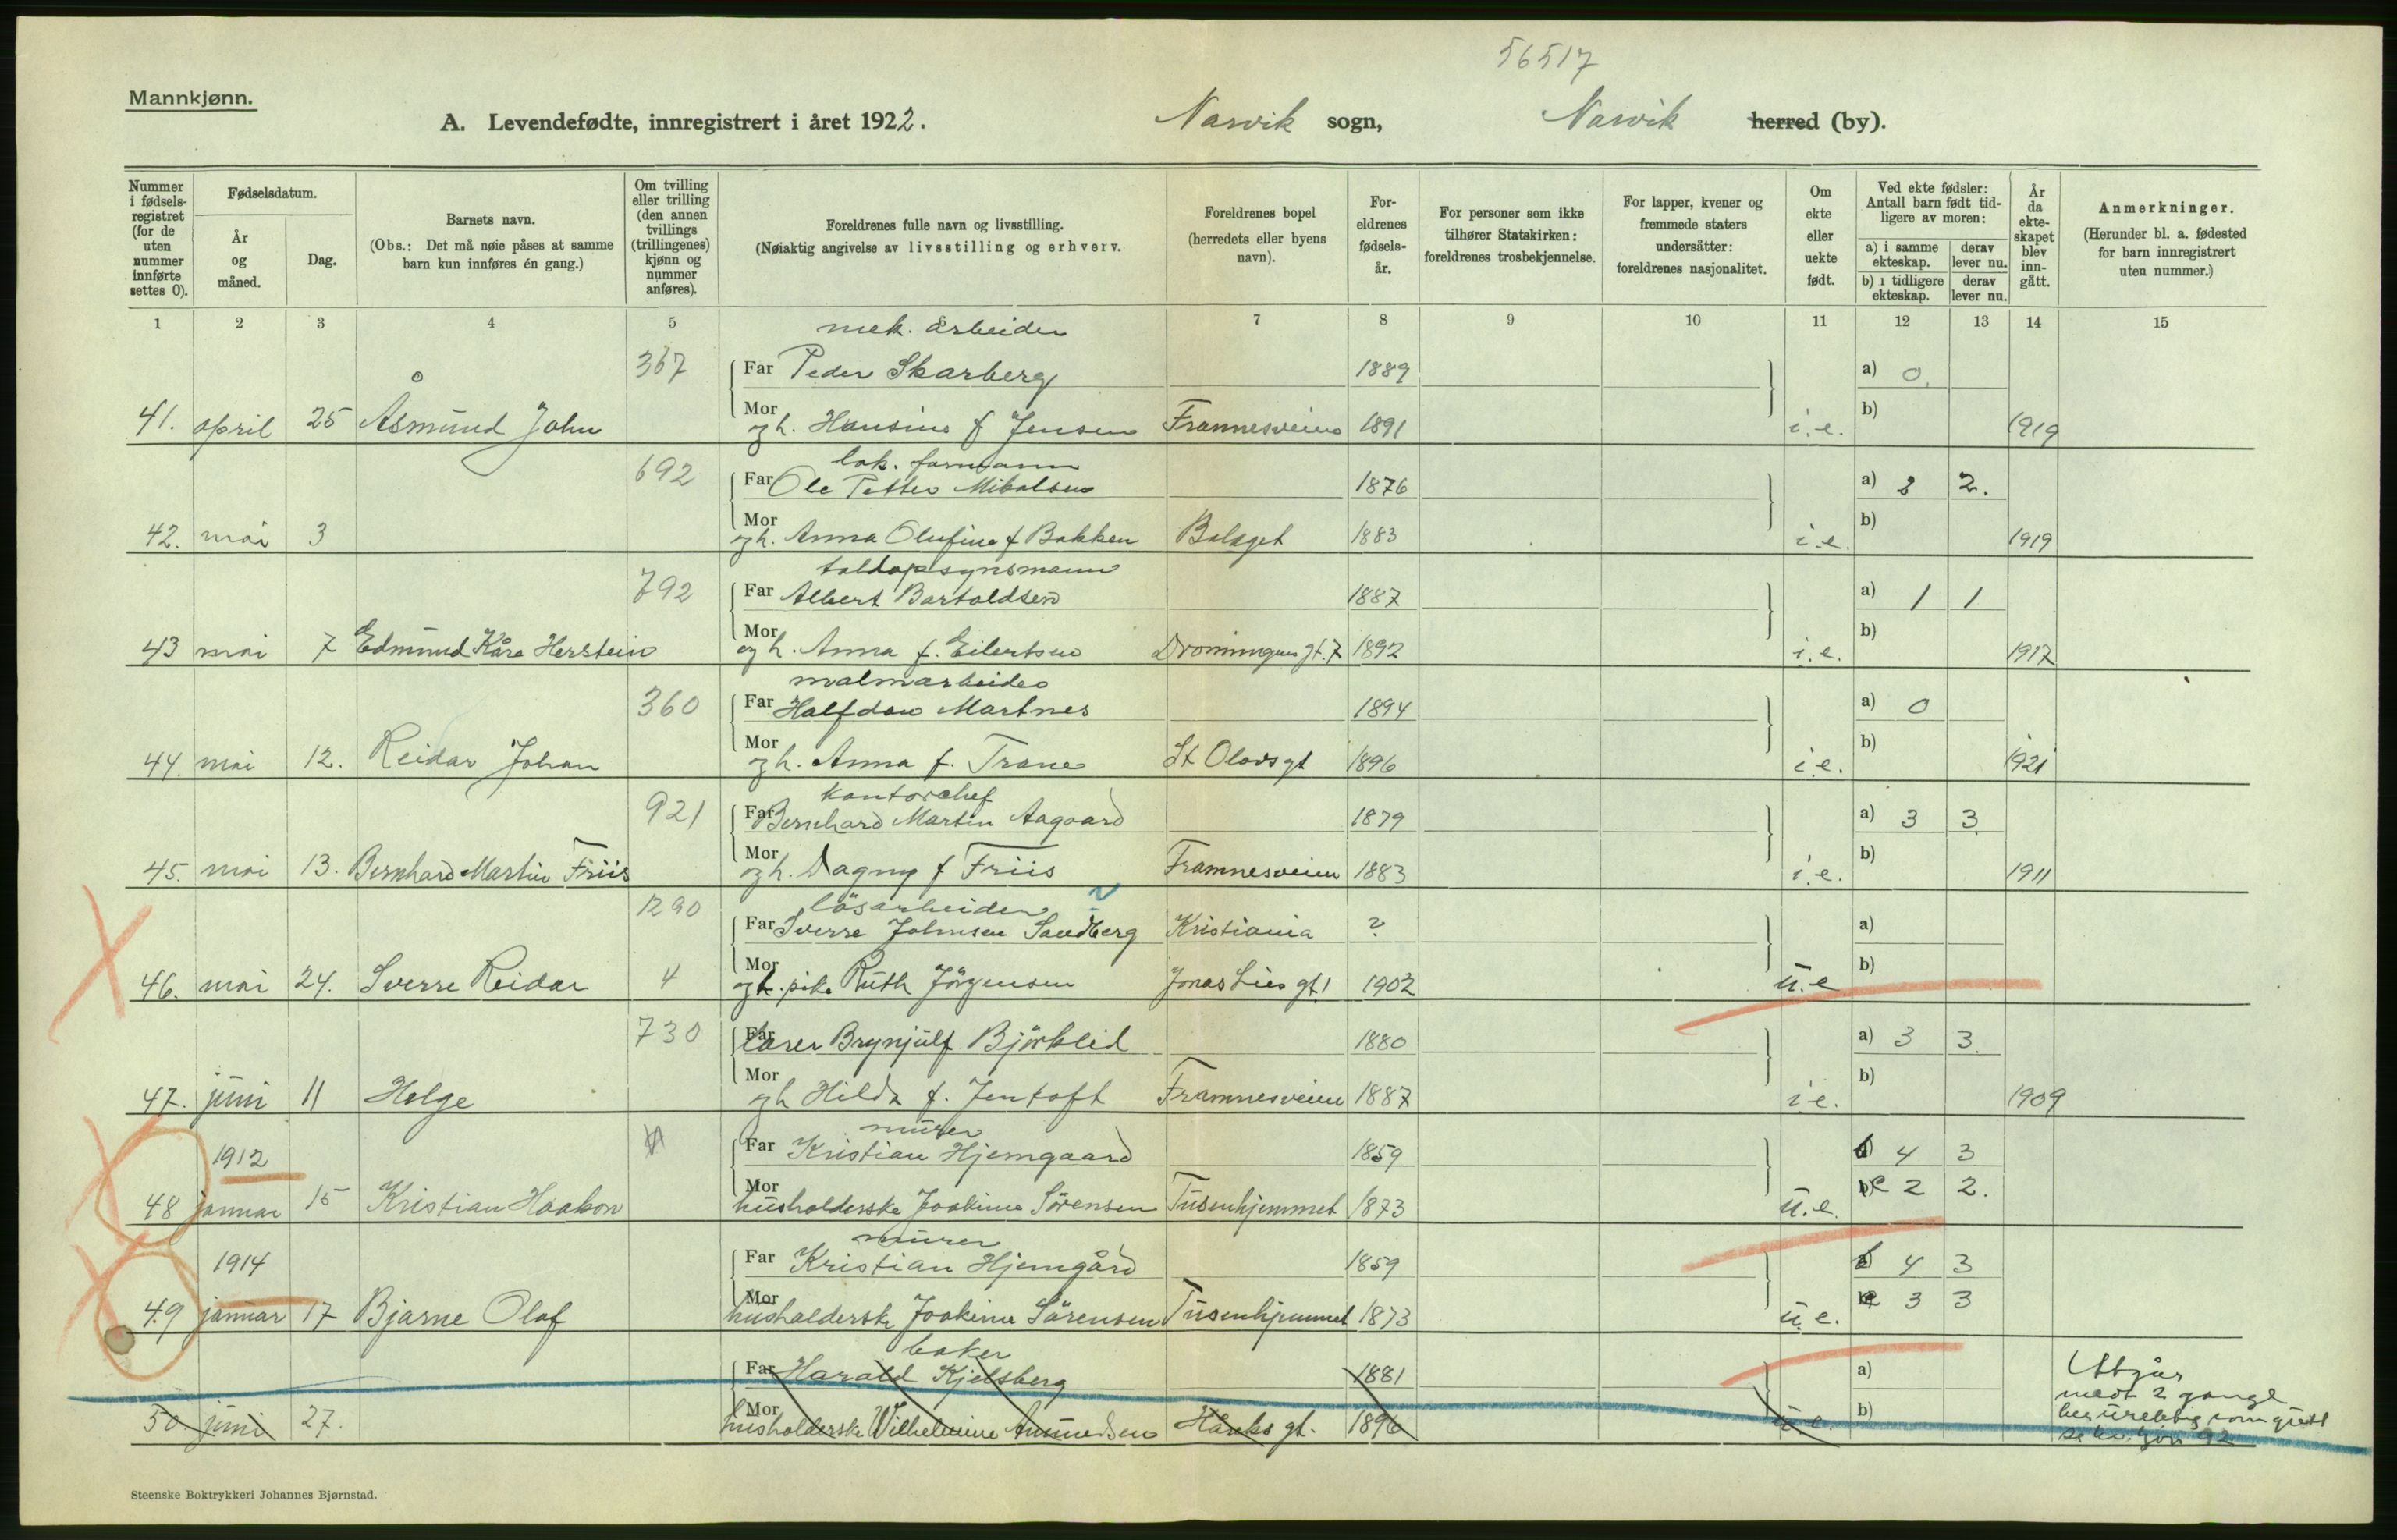 56517
Mannkjønn.
A. Levendefødte, innregistrert i året 1922. Narvik sogn, Narvik herred (by).
Nummer i fødsels-registret (for de uten nummer innførte settes 0).
Fødselsdatum.
År og måned.
Dag.
Barnets navn.
(Obs.: Det må nøie påses at samme barn kun innføres én gang.)
Om tvilling eller trilling (den annen tvillings (trillingenes) kjønn og nummer anføres).
Foreldrenes fulle navn og livsstilling.
(Nøiaktig angivelse av livsstilling og erhverv.
Foreldrenes bopel (herredets eller byens navn).
For-eldrenes fødsels-år.
For personer som ikke tilhører Statskirken: foreldrenes trosbekjennelse.
For lapper, kvener og fremmede staters undersåtter: foreldrenes nasjonalitet.
Om ekte eller uekte født.
Ved ekte fødsler: Antall barn født tid-ligere av moren:
a) i samme ekteskap. derav lever nu.
b) i tidligere ekteskap. derav lever nu.
År da ekte-skapet blev inn-gått.
Anmerkninger.
(Herunder bl. a. fødested for barn innregistrert uten nummer.)
1 2 3 4 5 6 7 8 9 10 11 12 13 14 15
mek. arbeider
367 Far Peder Skarberg 1889 a) 0
41. april 25 Åsmund John Mor og h. Hansine f Jensen Framnesveien 1891 i.e. b) 1919
lok. formann
692 Far Ole Petter Mikalsen 1876 a) 3 2.
42. mai 3 Mor og h. Anna Olufine f Bakken Bolaget 1883 i.e. b) 1919
toldopsynsmann
792 Far Albert Bartoldsen 1887 a) 1 1
43 mai 7 Edmund Kåre Herstein Mor og h. Anna f. Eilertsen Dronningens gt. 7 1892 i.e. b) 1917
malmarbeider
360 Far Halfdan Martnes 1894 a) 0
44. mai 12. Reidar Johan Mor og h. Anna f. Trane St Olavs gt 1896 i.e. b) 1921
kontorchef
921 Far Bernhard Martin Aagaard 1879 a) 3 3
45. mai 13. Bernhard Martin Friis Mor og h. Dagny f Friis Framnesveien 1883 i.e. b) 1911
løsarbeider
1290 Far Sverre Johnsen Sandberg Kristiania ? a)
46. mai 24. Sverre Reidar 4 Mor og h. pike Ruth Jörgensen Jonas Lies gt 1 1902 u.e b)
730 Far lærer Brynjulf Björklid 1880 a) 3 3
47. juni 11 Helge Mor og h Hilda f. Jentoft Framnesveien 1887 i.e. b) 1909
murer
1912 Far Kristian Hjemgaard 1859 4 3
48 januar 15 Kristian Haakon Mor husholderske Joakime Sörensen Tusenhjemmet 1873 u.e. 2 2.
murer
1914 Far Kristian Hjemgård 1859 4 3
49 januar 17 Bjarne Olaf Mor husholdersk Joakime Sörensen Tusenhjemmet 1873 u.e. 3 3
baker
Far Harald Kjelsberg 1881 a)
50 juni 27. Mor husholderske Wilhelmine Amundsen Hareks gt. 1896 u.e. b)
Utgår
medt 2 gange
her urektig som gutt
Steenske Boktrykkeri Johannes Bjørnstad.